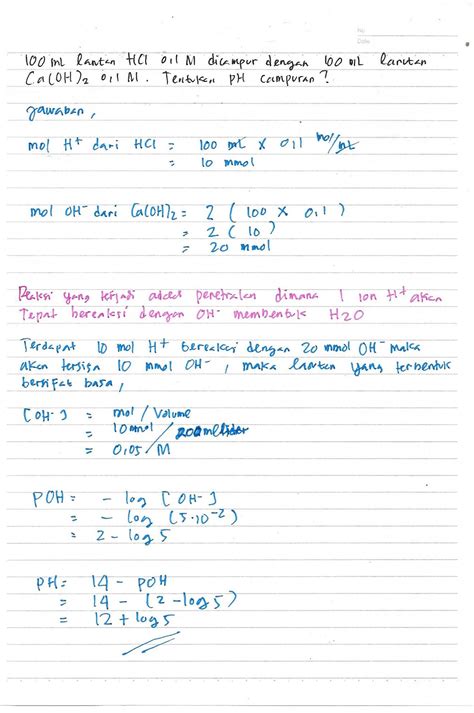 No
Date
100 mL larutan HCl 0,1 M dicampur dengan 100 mL larutan
Ca(OH)2 0,1 M. Tentukan pH campuran?
Jawaban,
mol H+ dari HCl = 100 mL x 0,1 mol/mL
= 10 mmol
mol OH- dari Ca(OH)2 = 2 (100 x 0,1)
= 2 (10)
= 20 mmol
Reaksi yang terjadi adalah penetralan dimana 1 ion H+ akan
Tepat bereaksi dengan OH- membentuk H2O
Terdapat 10 mol H+ bereaksi dengan 20 mmol OH- maka
akan tersisa 10 mmol OH-, maka larutan yang terbentuk
bersifat basa,
[OH-] = mol / Volume
= 10 mmol / 200
= 0,05 / M
POH = - log [OH-]
= - log (5.10-2)
= 2 - log 5
PH = 14 - POH
= 14 - (2 - log 5)
= 12 + log 5